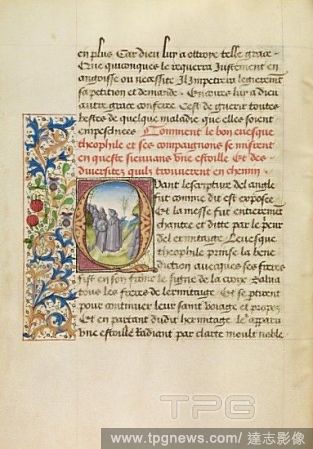 en plus Car dieu luy a ottroye telle grace.
Que quiconques le requerra Justement en
angoisse ou necessite Il Impetrera legierement
sa petition et demande. Encores luy a dieu
autre grace conferee. Cest de guerir toutes
bestes de quelque maladie que elles soient
empeschees Comment le bon euesque
theophile et ses compaignons se misrent
en queste sieuuans vne estoille Et des
diuersitez quilz trouuerent en chemin.
Quant lescripture del angle
fut comme dit est exposee
Et la messe fut entierement
chantee et ditte par le pere
del ermitaige Leuesque
theophile prinse la bene
diction auecques ses freres
fist en son frone le signe de la croix Salua
tous les freres de lermitaige Et se partirent
pour continuer leur saint voyage et propoz
Et en partant dudit hermitage Il apparu
vne estoille Radiant par clarte moult noble
TPG
www.tpgnews.com/達志影像